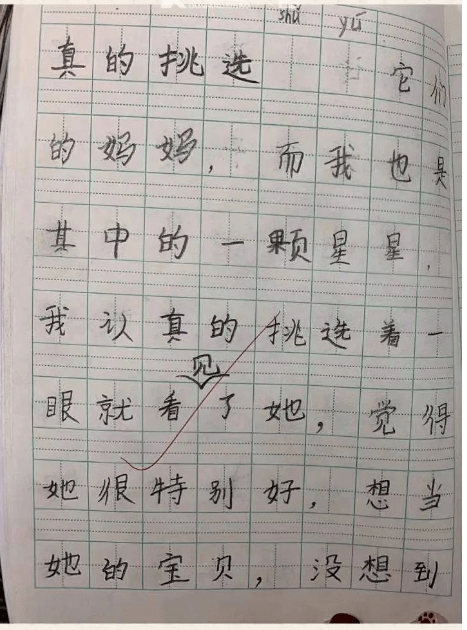 shǔ yú
真的挑选 它们
的妈妈，而我也是
其中的一颗星星，
我认真的挑选着一
见
眼就看了她，觉得
她很特别好，想当
她的宝贝，没想到